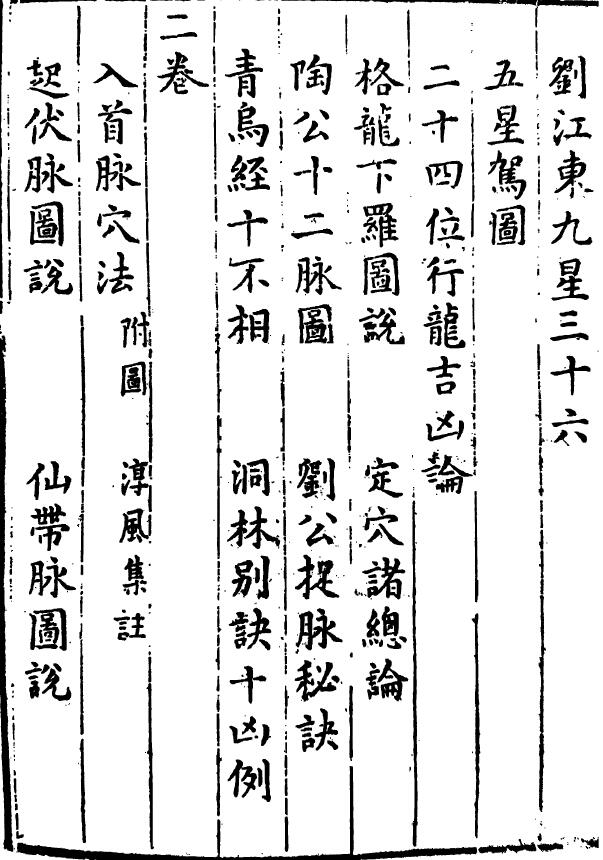 劉江東九星三十六
五星駕圖
二十四位行龍吉凶論
格龍下羅圖說　定穴諸總論
陶公十二脉圖　劉公捉脉秘訣
青烏経十不相　洞林别訣十凶例
二卷
入首脉穴法　附圖　淳風集註
起伏脉圖說　仙帶脉圖說